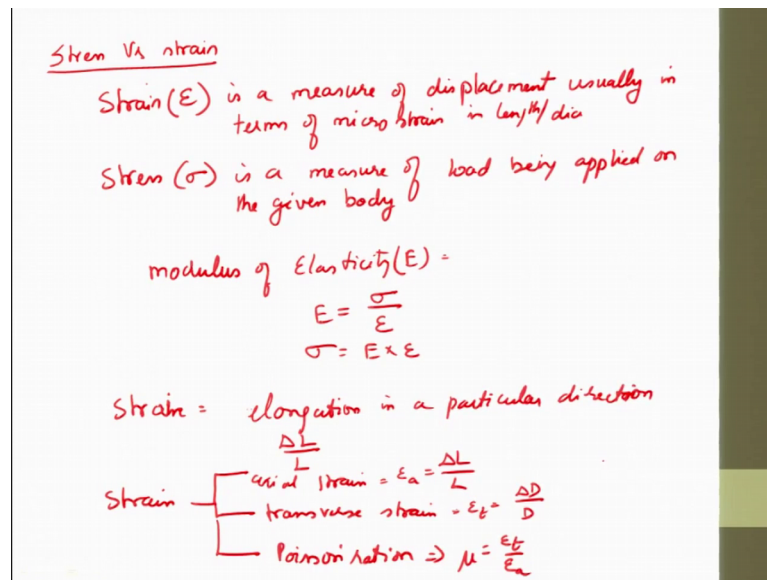 Stress Vs strain
Strain (ε) is a measure of displacement usually in
terms of micro strain in length/dia
Stress (σ) is a measure of load being applied on
the given body
modulus of Elasticity (E) =
E = σ/ε
σ = E × ε
Strain = elongation in a particular direction
ΔL/L
Strain
axial strain = εa = ΔL/L
transverse strain = εt = ΔD/D
Poisson ration ⇒ μ = εt/εa